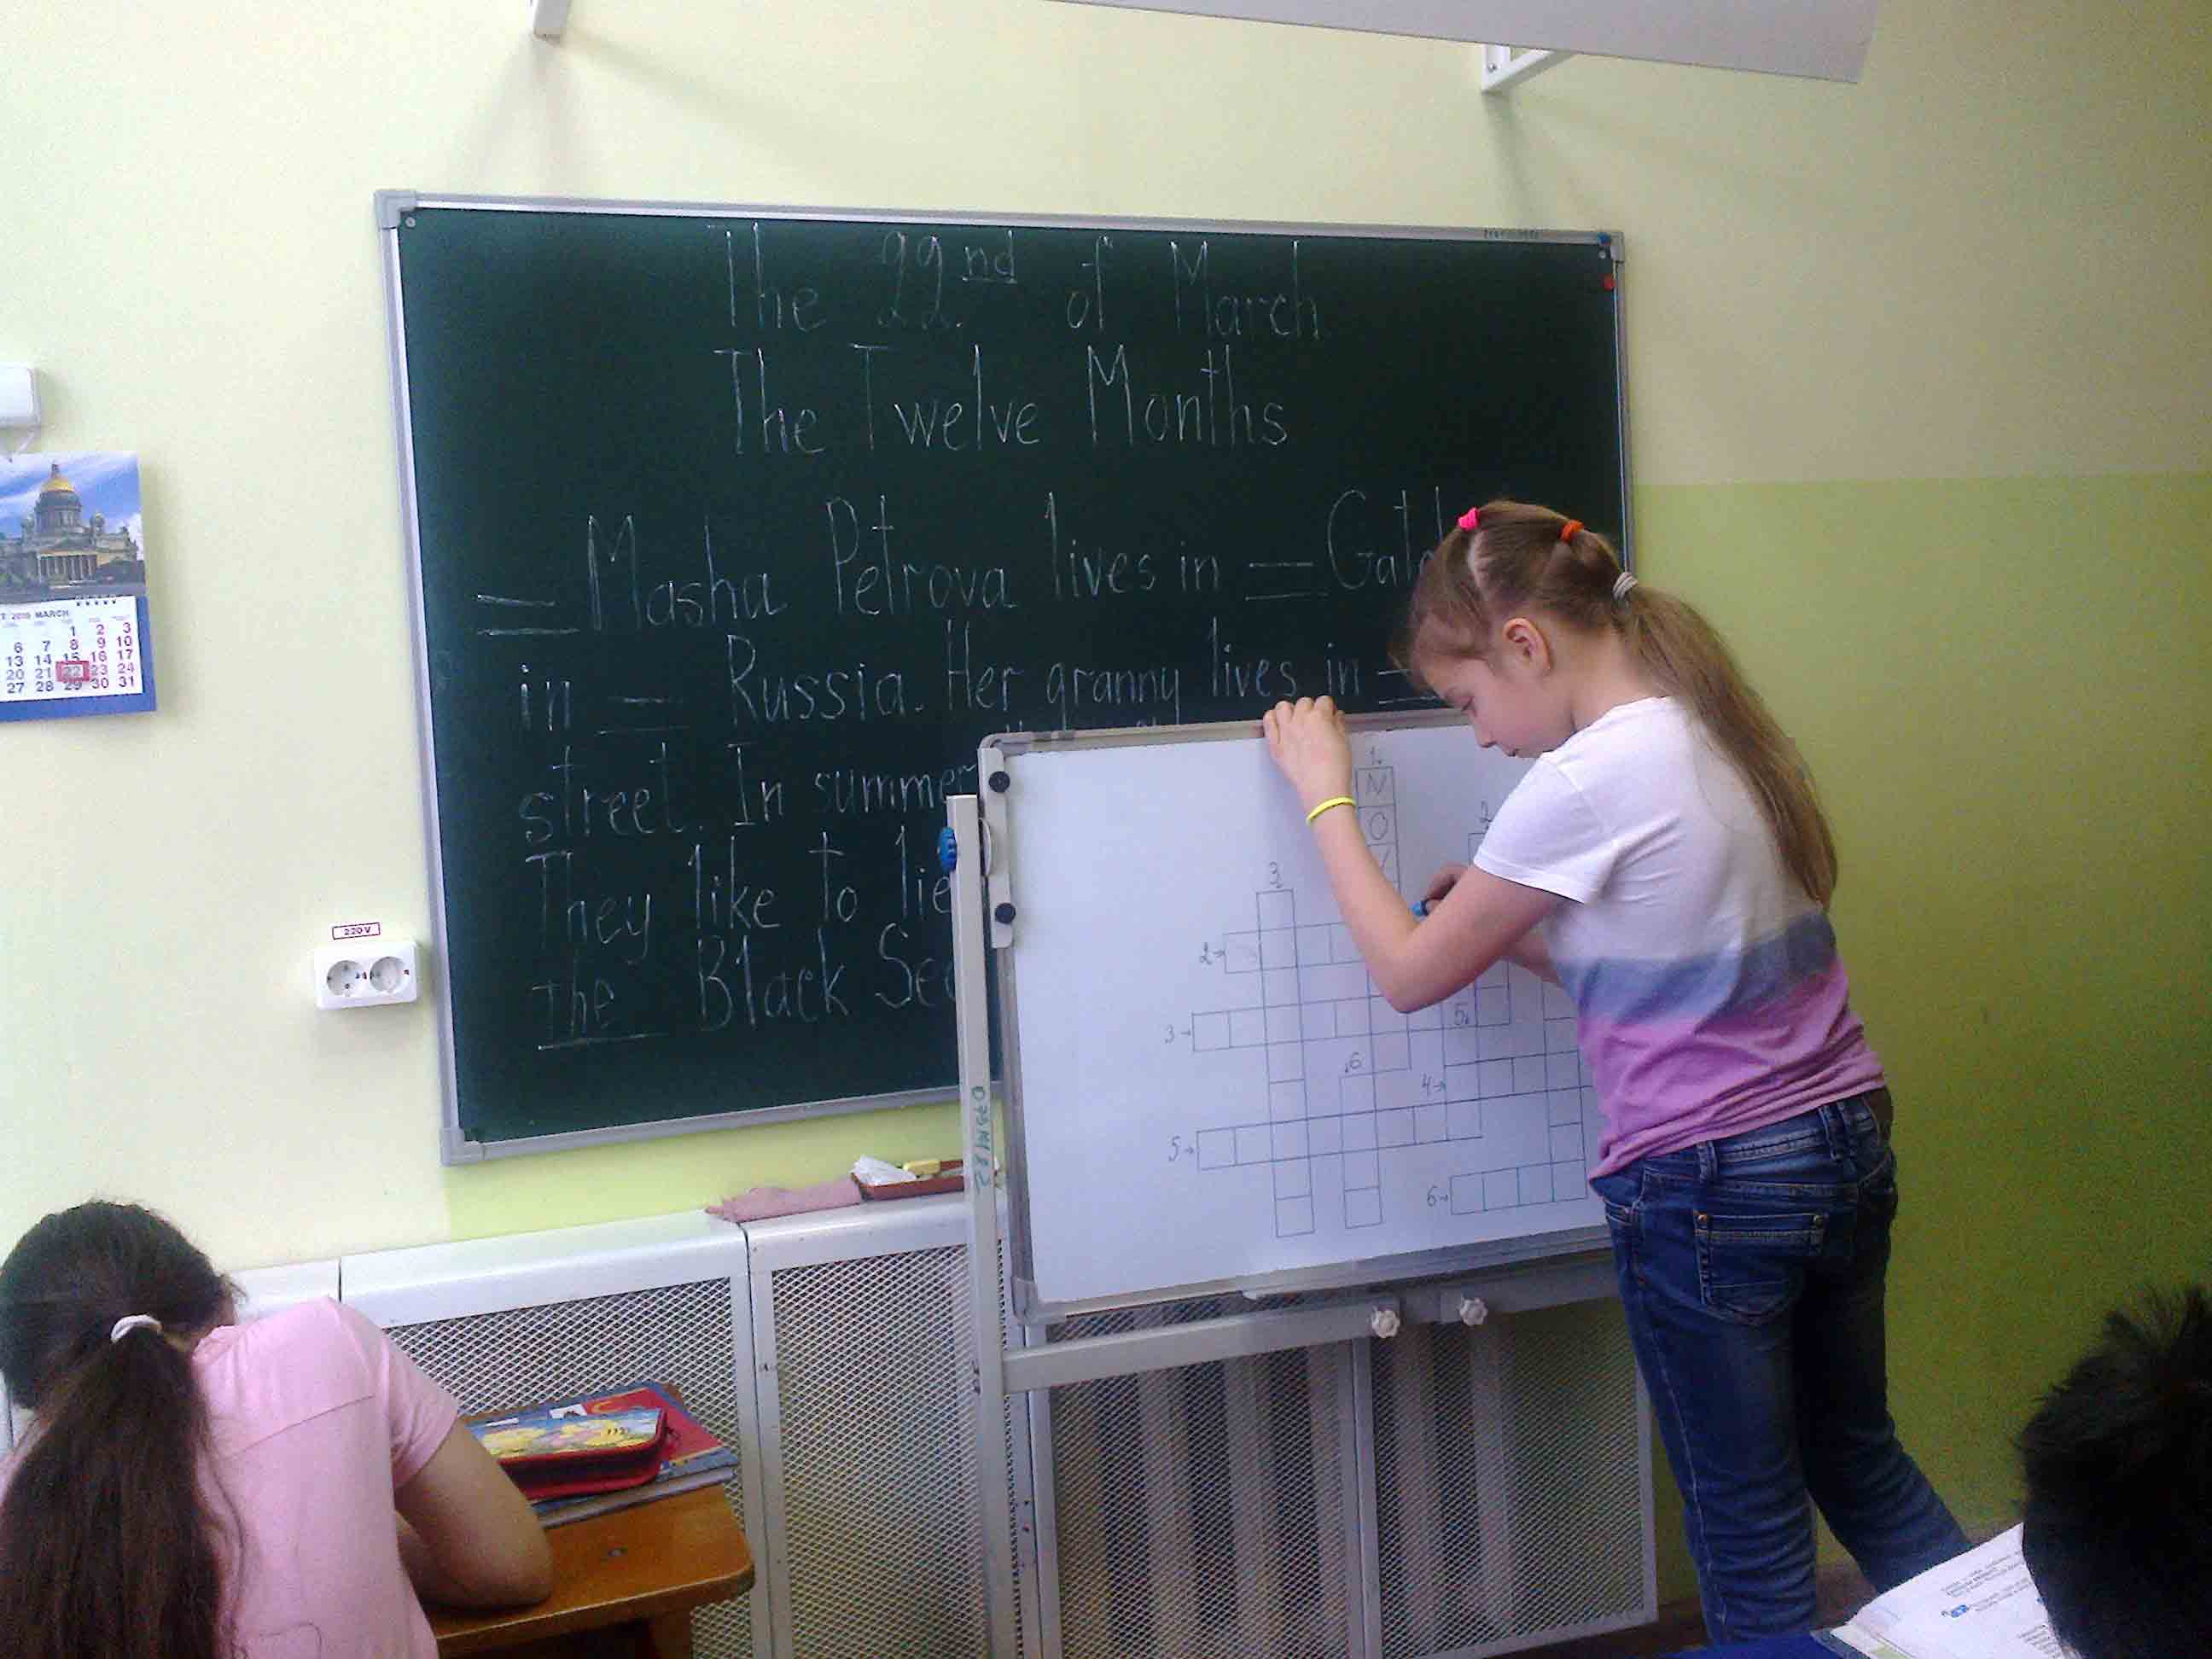 The 22nd of March.
The Twelve Months
= Masha Petrova lives in =
in = Russia. Her granny lives in =
street. In summer
They like to lie
the Black
MARCH
1 2 3
6 7 8 9 10
13 14 15 16 17
20 21 22 23 24
27 28 29 30 31
220V
1.
N
O
2
3.
2→
3→
5.
6
4→
5→
6→